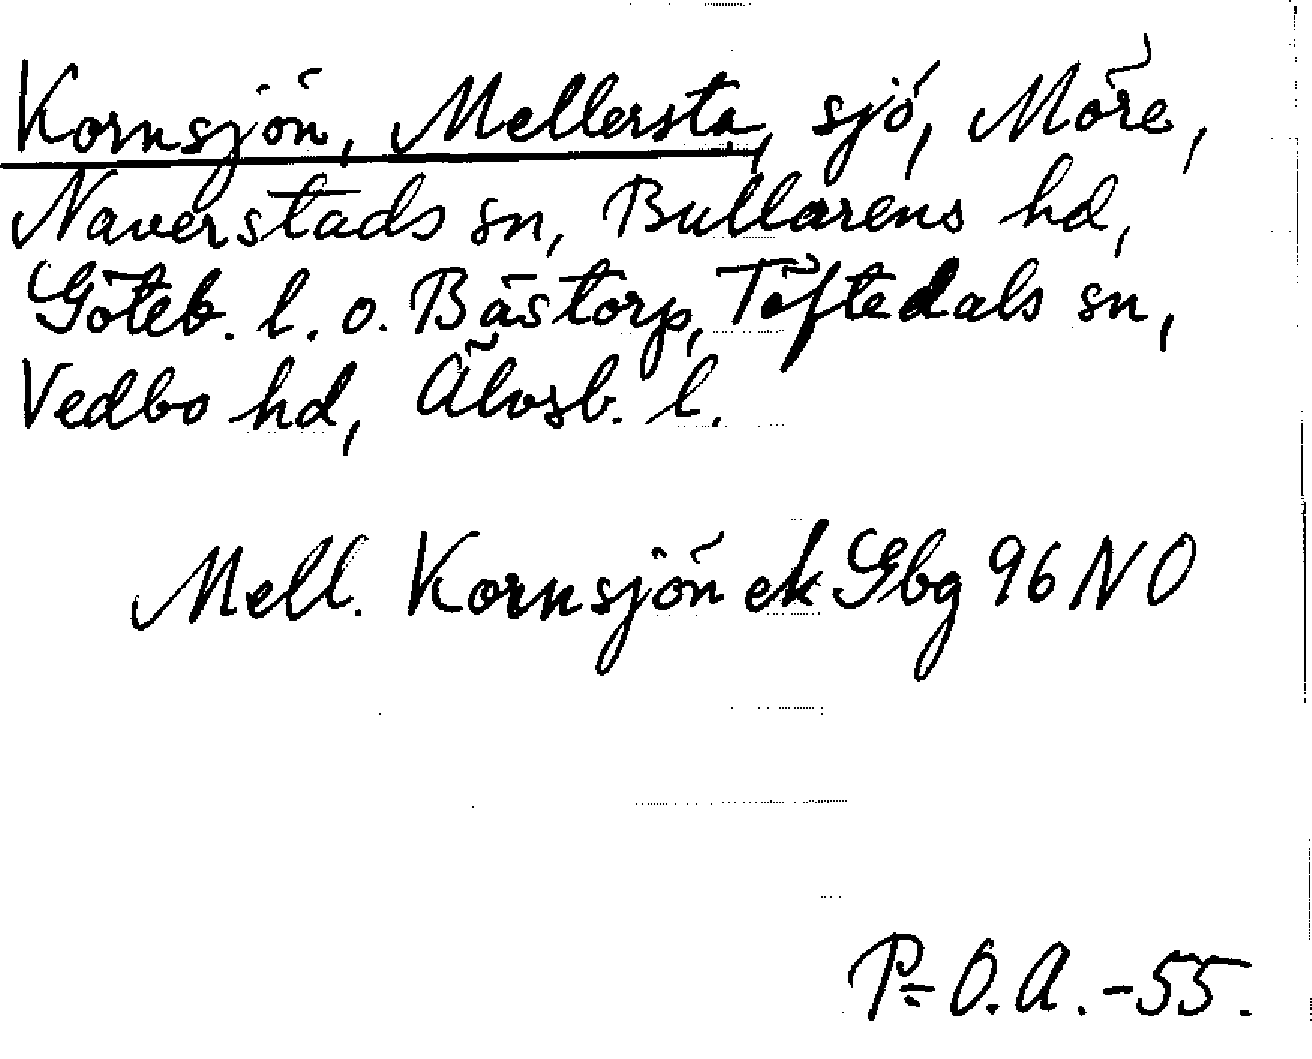 Kornsjön, Mellersta, sjö, Möre,
Naverstads sn, Bullarens hd,
Göteb. l. o. Bästorp, Töftedals sn,
Vedbo hd, Älvsb. l.
Mell. Kornsjön ek Gbg 96 NO
P-O.A.-55.